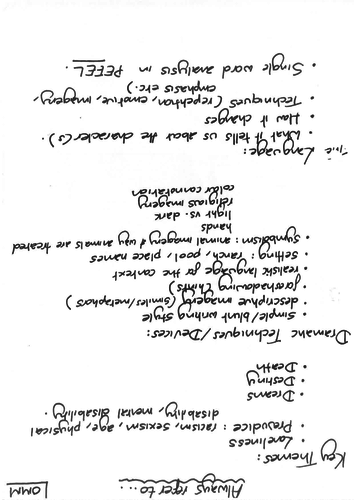 Always refer to...
OMM
Key Themes:
• Loneliness
• Prejudice : racism, sexism, age, physical
disability, mental disability.
• Dreams
• Destiny
• Death
Dramatic Techniques/Devices:
• Simple/blunt writing style
• descriptive imagery (similes/metaphors)
• foreshadowing (hints)
• realistic language for the context
• setting: ranch, pool, place names
• Symbolism: animal imagery & way animals are treated
hands
light vs. dark
religious imagery
colour connotation
The Language:
• What it tells us about the character(s).
• How it changes
• Techniques (repetition, emotive, imagery,
emphasis etc.)
• Single word analysis in PEFEL.